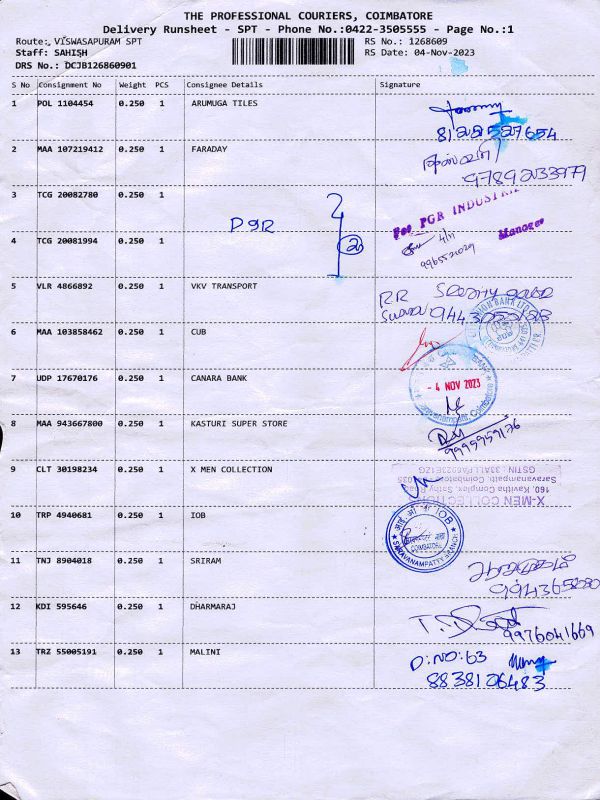 THE PROFESSIONAL COURIERS, COIMBATORE
Delivery Runsheet - SPT - Phone No.:0422-3505555 - Page No.:1
Route: VISWASAPURAM SPT
RS No.: 1268609
Staff: SAHISH
RS Date: 04-Nov-2023
DRS No.: DCJB126860901
S No Consignment No Weight PCS Consignee Details Signature
1 POL 1104454 0.250 1 ARUMUGA TILES
2 MAA 107219412 0.250 1 FARADAY
9789233979
3 TCG 20082780 0.250 1
For PGR INDUSTRI
PGR
2
4/11
Manager
4 TCG 20081994 0.250 1
9965521029
5 VLR 4866892 0.250 1 VKV TRANSPORT
RR
6 MAA 103858462 0.250 1 CUB
7 UDP 17670176 0.250 1 CANARA BANK
- 4 NOV 2023
Saravanampatti, Coimbatore
8 MAA 943667800 0.250 1 KASTURI SUPER STORE
9 CLT 30198234 0.250 1 X MEN COLLECTION
X-MEN COLLECTION
160, Kavitha Complex, Sathy Road
Saravanampatti, Coimbatore
10 TRP 4940681 0.250 1 IOB
IOB
COIMBATORE
SARAVANAMPATTY BRANCH
11 TNJ 8904018 0.250 1 SRIRAM
12 KDI 595646 0.250 1 DHARMARAJ
9976041669
13 TRZ 55005191 0.250 1 MALINI
D:NO:63
8838126483